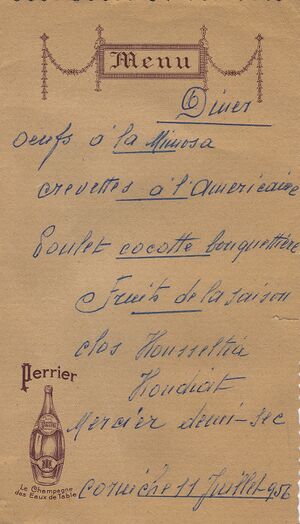 Menu
Diner
oeufs à la Mimosa
crevettes à l'américaine
Poulet cocotte bouquettière
Fruits de la saison
clos
Mercier demi-sec
corniche 11 Juillet 956
Perrier
Perrier
Le Champagne
des Eaux de Table